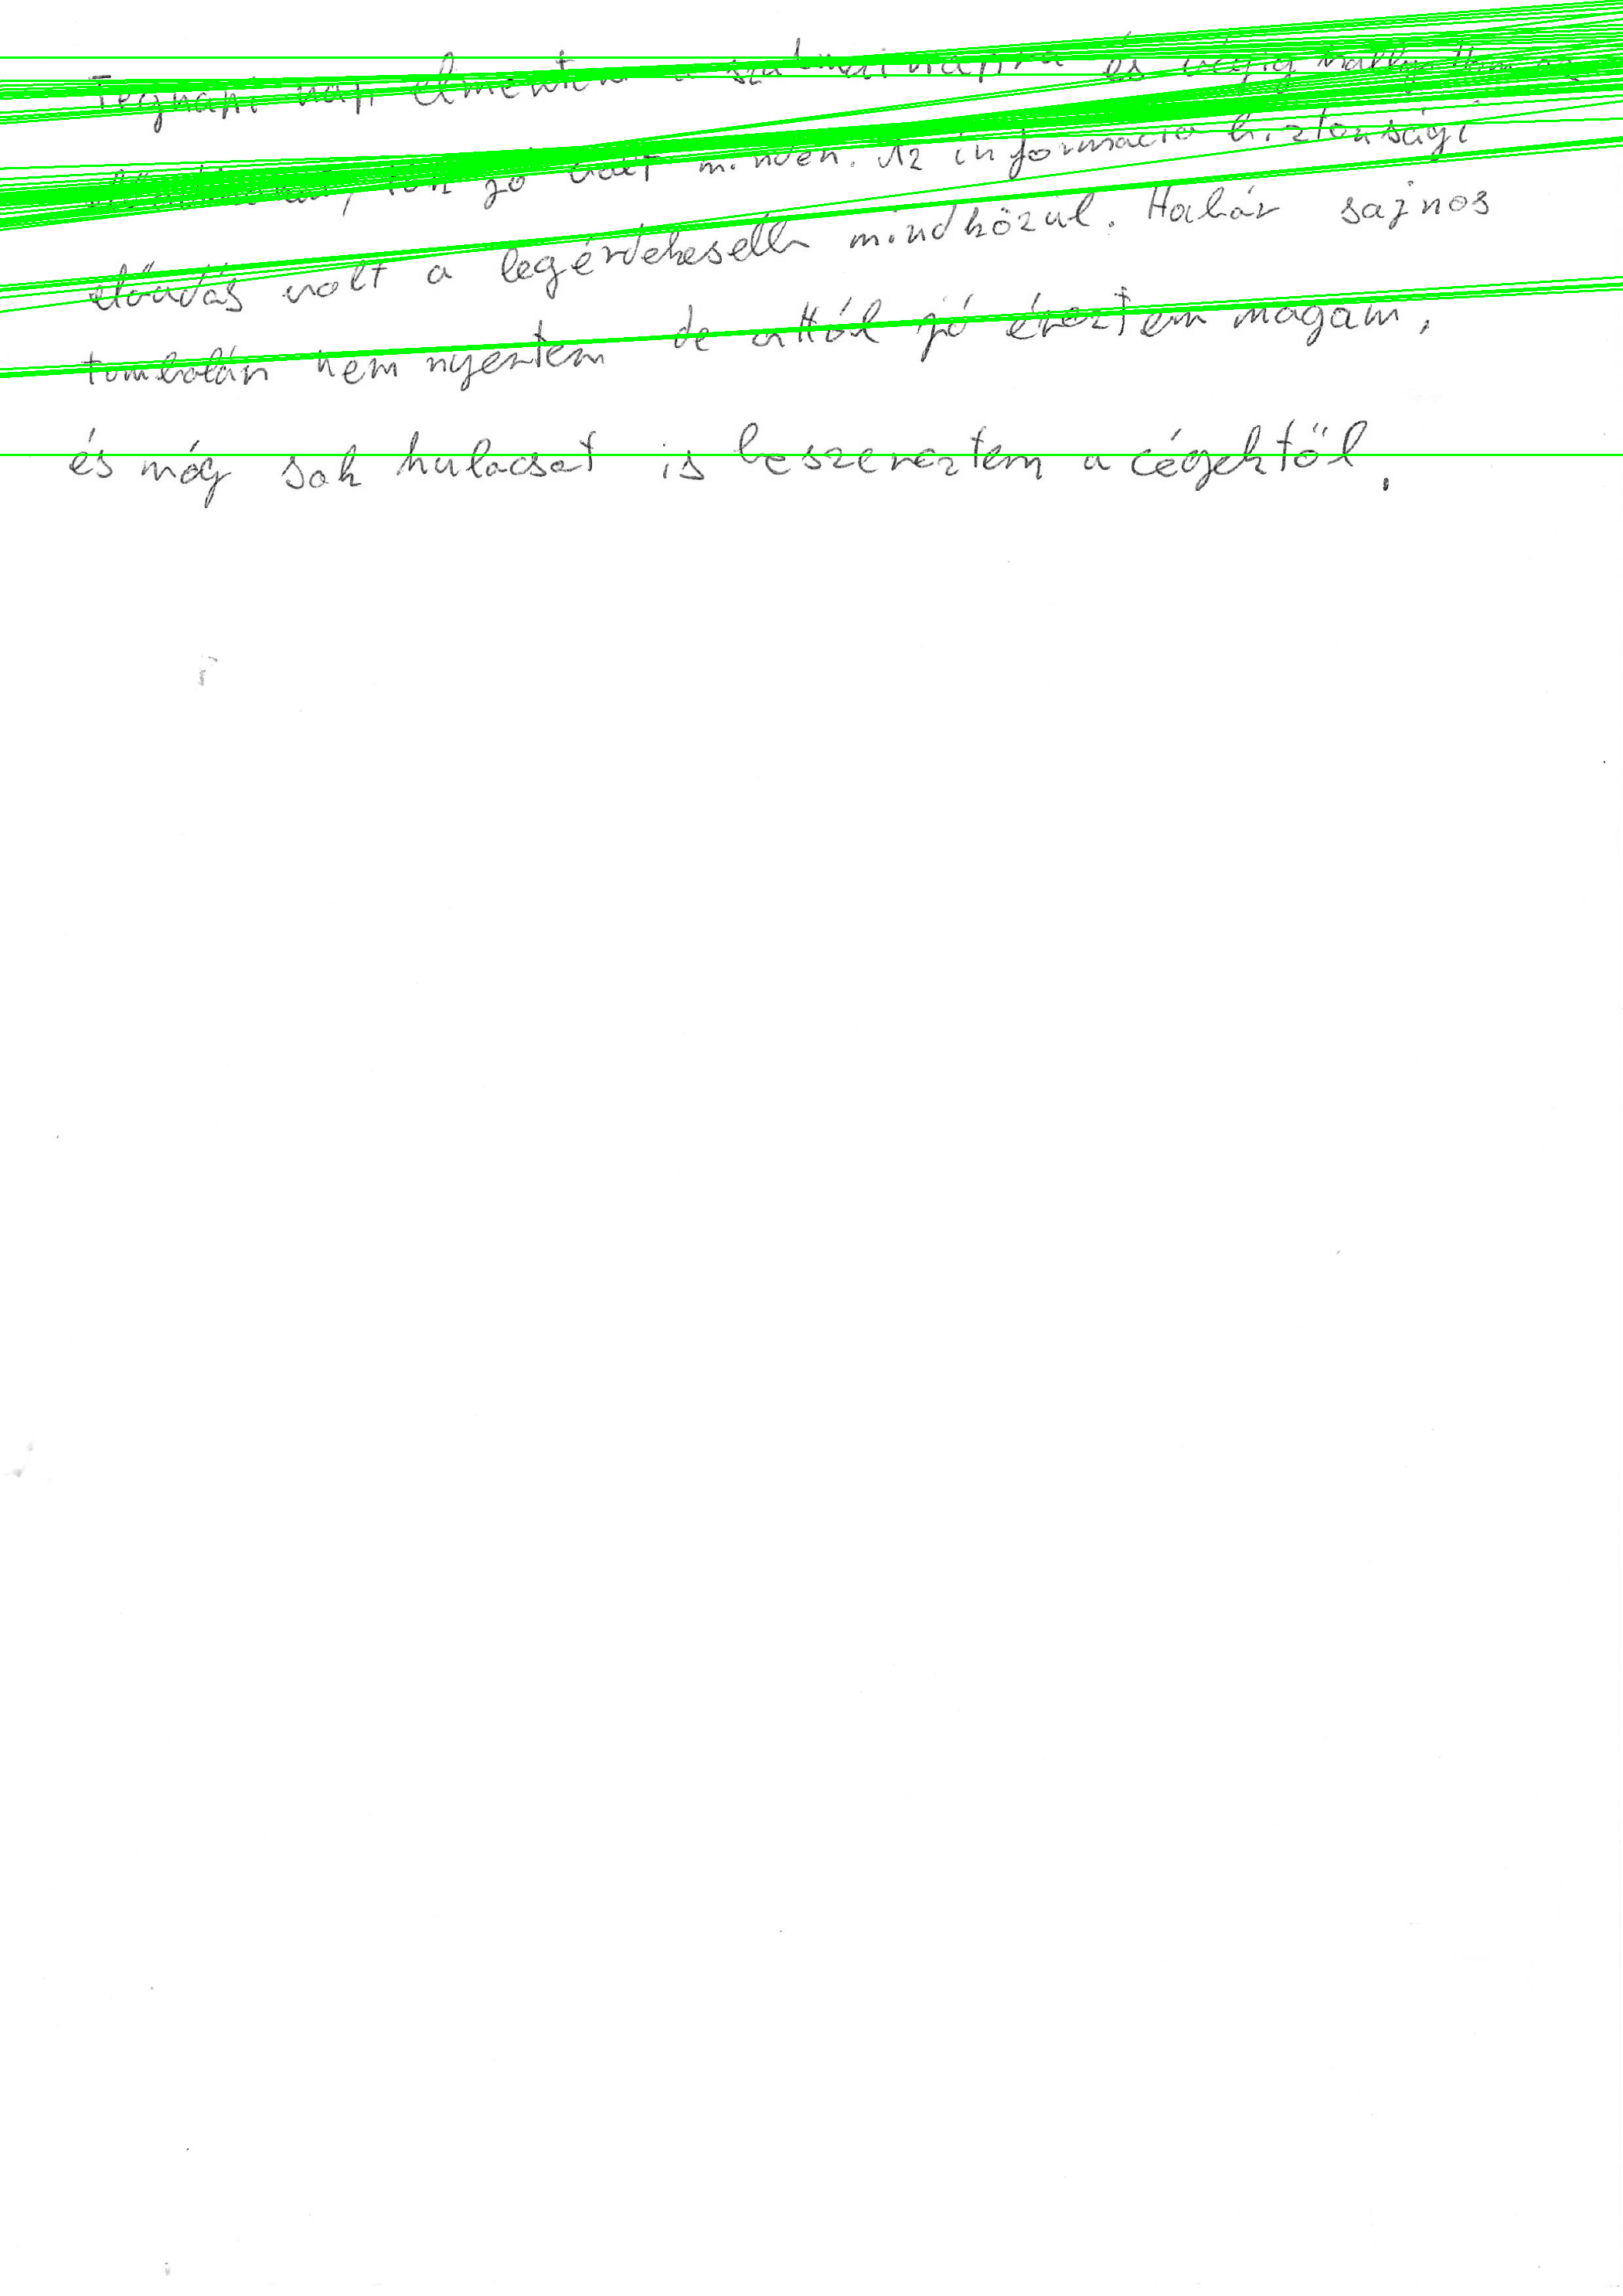 Tegnapi nap elmentem a szakmai napra és végig hallgattam az
jó volt minden. Az információ biztonsági
előadás volt a legérdekesebb mindközül. Habár sajnos
tombolán nem nyertem de attól jó éreztem magam,
és még sok kulacsot is beszereztem a cégektől.